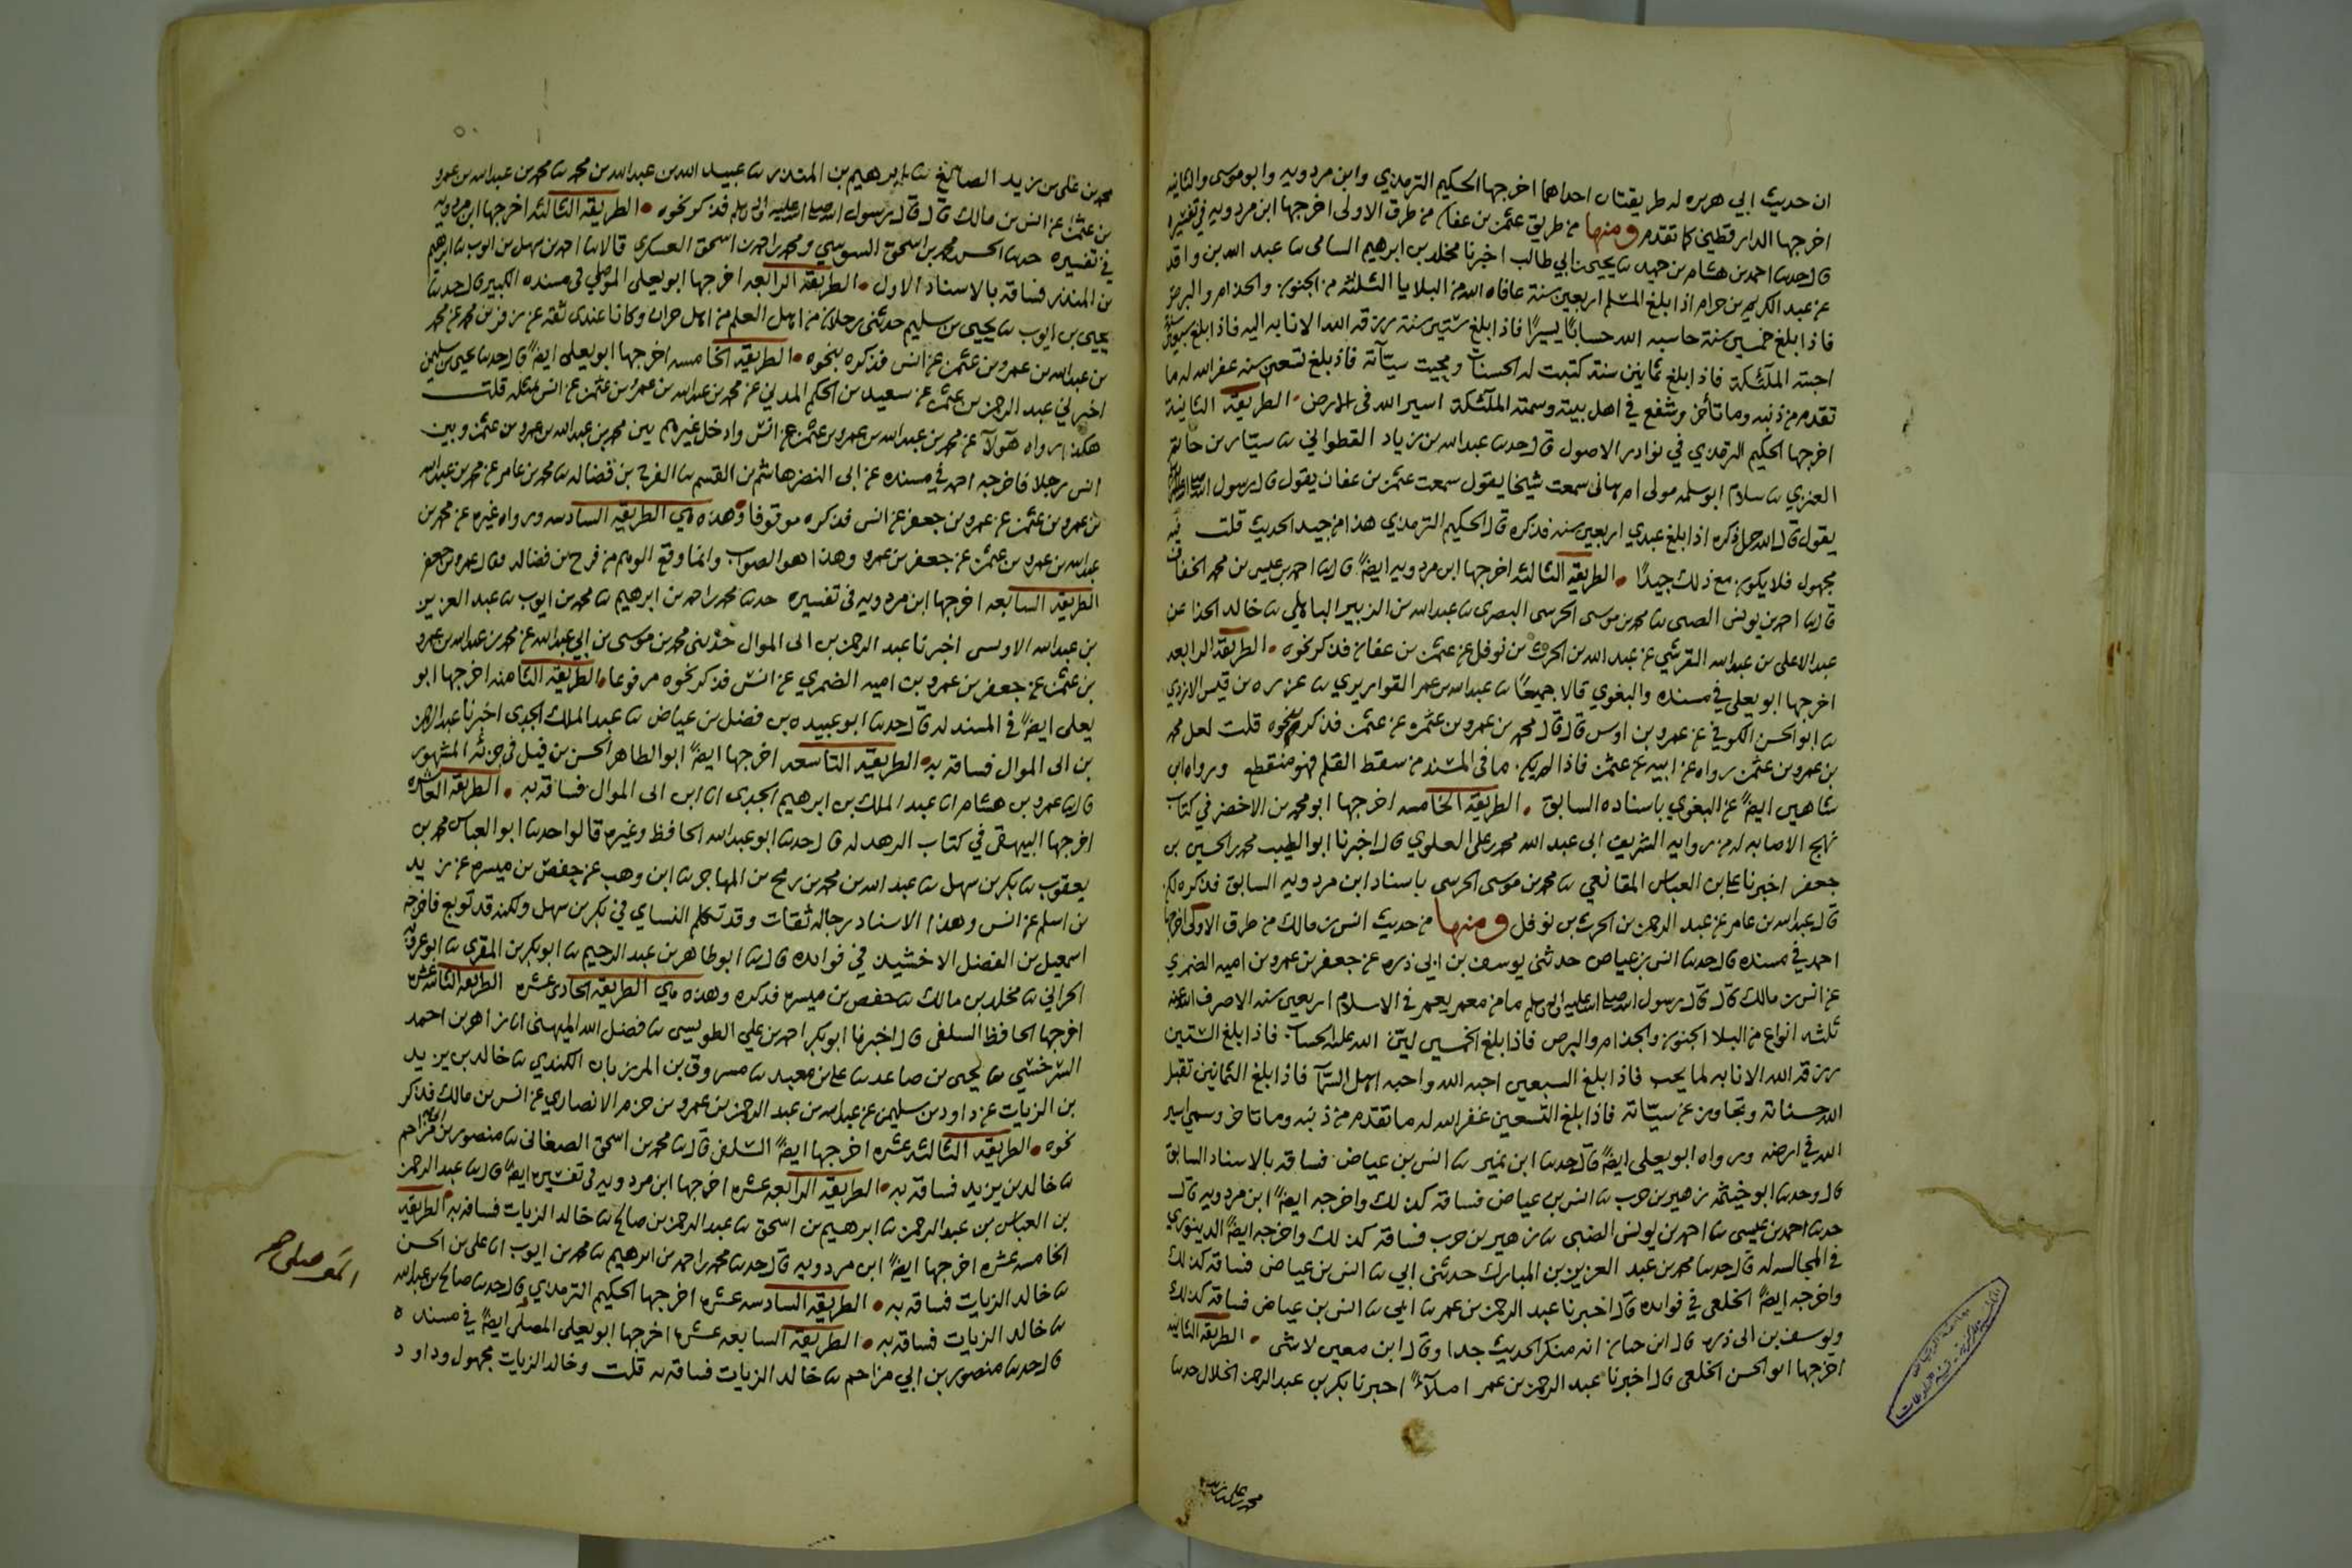 ان حديث ابي هريره له طريقتان احداهما اخرجها الحكيم الترمذي وابن مردويه وابو موسى والثانيه
اخرجها الدارقطني كما تقدم ومنها من طريق عثمن بن عفان من طرق الاولى اخرجها ابن مردويه في تفسيره
قال حدثنا احمد بن هشام بن حميد ثنا يحيى بن ابي طالب اخبرنا مخلد بن ابرهيم السامى ثنا عبد الله بن واقد
عن عبد الكريم بن حرام اذا بلغ المسلم اربعين سنة عافاه الله من البلايا الثلثة من الجنون والجذام والبرص
فاذا بلغ خمسين سنة حاسبه الله حسابًا يسيرًا فاذا بلغ ستين سنة رزقه الله الانابه اليه فاذا بلغ سبعين سنة
احبته الملآئكة فاذا بلغ ثمانين سنة كتبت له الحسنات ومحيت سيآته فاذ بلغ تسعين سنه غفر الله له ما
تقدم من ذنبه وما تأخر وشفع في اهل بيته وسمته الملآئكة اسير الله في الارض . الطريقة الثانية
اخرجها الحكيم الترمذي في نوادر الاصول قال حدثنا عبد الله بن زياد القطواني ثنا سيّار بن حاتم
العنزي ثنا سلام ابو سلمه مولى ام هانى سمعت شيخا يقول سمعت عثمن بن عفان يقول قال رسول الله صلى الله عليه وسلم
يقول قال الله جل ذكره اذا بلغ عبدي اربعين سنه فذكره قال الحكيم الترمذي هذا من جيد الحديث قلت فيه
مجهول فلا يكون مع ذلك جيدًا . الطريقه الثالثه اخرجها ابن مردويه ايضًا قال ثنا احمد بن عيسى بن محمد الخفاف
قال ثنا احمد بن يونس الضبى ثنا محمد بن موسى الحرسى البصرى ثنا عبد الله بن الزبير الباهلي ثنا خالد الحذا عن
عبد الاعلى بن عبد الله القرشي عن عبد الله بن الحرث بن نوفل عن عثمن بن عفان فذكر نحوه . الطريقة الرابعه
اخرجها ابو يعلى في مسنده والبغوي قالا جميعًا ثنا عبد الله بن عمر القواريري ثنا عزره بن قيس الازدي
ثنا ابو الحسن الكوفي عن عمرو بن اوس قال قال محمد بن عمرو بن عثمن عن عثمن فذكره نحوه قلت لعل محمد
بن عمرو بن عثمن رواه عن ابيه عن عثمن فاذا لم يكن ما في المسند من سقط القلم فهو منقطع ورواه ابن
شاهين ايضًا عن البغوي باسناده السابق . الطريقة الخامسه اخرجها ابو محمد بن الاخضر في كتاب
نهج الاصابه له من روايه الشريف ابي عبد الله محمد بن علي العلوي قال اخبرنا ابو الطيب محمد بن الحسين بن
جعفر اخبرنا علي بن العباس المقانعي ثنا محمد بن موسى الحرسي باسناد ابن مردويه السابق فذكره لكن
قال عبد الله بن عامر عن عبد الرحمن بن الحرث بن نوفل ومنها من حديث انس بن مالك من طرق الاولى اخرجها
احمد في مسنده قال حدثنا انس بن عياض حدثنى يوسف بن ابي ذره عن جعفر بن عمرو بن اميه الضمري
عن انس بن مالك قال قال رسول الله صلى الله عليه وسلم ما من معمر يعمر في الاسلام اربعين سنه الا صرف الله عنه
ثلثه انواع من البلا الجنون والجذام والبرص فاذا بلغ الخمسين ليّن الله عليه الحساب فاذا بلغ الستين
رزقه الله الانابه لما يحب فاذا بلغ السبعين احبه الله واحبه اهل السمآ فاذا بلغ الثمانين تقبل
الله حسناته وتجاوز عن سيّاته فاذا بلغ التسعين غفر الله له ما تقدم من ذنبه وما تاخر وسمي اسير
الله في ارضه ورواه ابو يعلى ايضًا قال حدثنا ابن نمير ثنا انس بن عياض فساقه بالاسناد السابق
قال وحدثنا ابو خيثمه زهير بن حرب ثنا انس بن عياض فساقه كذلك واخرجه ايضًا ابن مردويه قال
حدثنا احمد بن عيسى ثنا احمد بن يونس الضبى ثنا زهير بن حرب فساقه كذلك واخرجه ايضًا الدينوري
في المجالسه له قال حدثنا محمد بن عبد العزيز بن المبارك حدثنى ابي ثنا انس بن عياض فساقه كذلك
واخرجه ايضًا الخلعى في فوائده قال اخبرنا عبد الرحمن بن عمر ثنا ابي ثنا انس بن عياض فساقه كذلك
ويوسف بن ابي ذره قال ابن حبان انه منكر الحديث جدا وقال ابن معين لا شى . الطريقه الثانيه
اخرجها ابو الحسن الخلعى قال اخبرنا عبد الرحمن بن عمر املآءً اخبرنا بكر بن عبد الرحمن الخلال حدثنا
محمد بن على بن زيد
محمد بن على بن زيد الصائغ ثنا ابرهيم بن المنذر ثنا عبيد الله بن عبد الله بن محمد ثنا محمد بن عبد الله بن عمرو
بن عثمن عن انس بن مالك قال قال رسول الله صلى الله عليه وسلم فذكر نحوه . الطريقه الثالثه اخرجها ابن مردويه
في تفسيره حدثنا الحسن محمد بن اسحق السوسي ومحمد بن احمد بن اسحق العسكري قالا ثنا احمد بن سهل بن ايوب ثنا ابرهيم
بن المنذر فساقه بالاسناد الاول . الطريقة الرابعه اخرجها ابو يعلى الموصلي في مسنده الكبير قال حدثنا
يحيى بن ايوب ثنا يحيى بن سليم حدثنى رجلان من اهل العلم من اهل حران وكانا عندى ثقه عن زفر بن محمد عن محمد
بن عبد الله بن عمرو بن عثمن عن انس فذكره بنحوه . الطريقه الخامسه اخرجها ابو يعلى ايضًا قال حدثنا يحيى بن سليمن
اخبرني عبد الرحمن بن عثمن عن سعيد بن الحكم المدني عن محمد بن عبد الله بن عمرو بن عثمن عن انس بمثله قلت
هكذا رواه هولآ عن محمد بن عبد الله بن عمرو بن عثمن عن انس وادخل غيرهم بين محمد بن عبد الله بن عمرو بن عثمن وبين
انس رجلا فاخرجه احمد في مسنده عن ابي النضر هاشم بن القسم ثنا الفرج بن فضاله ثنا محمد بن عامر عن محمد بن عبد الله
بن عمرو بن عثمن عن عمرو بن جعفر عن انس فذكره موقوفا وهذه هي الطريقه السادسه ورواه غيره عن محمد بن
عبد الله بن عمرو بن عثمن عن جعفر بن عمرو وهذا هو الصواب وانما وقع الوهم من فرج بن فضاله وقال عمرو بن جعفر
الطريقه السابعه اخرجها ابن مردويه في تفسيره حدثنا محمد بن احمد بن ابرهيم ثنا محمد بن ايوب ثنا عبد العزيز
بن عبد الله الاويسى اخبرنا عبد الرحمن بن ابي الموال حدثنى محمد بن موسى بن ابي عبد الله عن محمد بن عبد الله بن عمرو
بن عثمن عن جعفر بن عمرو بن اميه الضمري عن انس فذكر نحوه مرفوعا . الطريقه الثامنه اخرجها ابو
يعلى ايضًا في المسند له قال حدثنا ابو عبيده بن فضل بن عياض ثنا عبد الملك الجدى اخبرنا عبد الرحمن
بن ابى الموال فساقه به . الطريقه التاسعه اخرجها ايضًا ابو الطاهر الحسن بن فيل في جزئه المشهور
قال ثنا عمرو بن هشام انا عبد الملك بن ابرهيم الجدى انا ابن ابى الموال فساقه به . الطريقه العاشره
اخرجها البيهقى في كتاب الزهد له قال حدثنا ابو عبد الله الحافظ وغيره قالوا حدثنا ابو العباس محمد بن
يعقوب ثنا بكر بن سهل ثنا عبد الله بن محمد بن رمح بن المهاجر ثنا ابن وهب عن حفص بن ميسره عن زيد
بن اسلم عن انس وهذا الاسناد رجاله ثقات وقد تكلم النساي في بكر بن سهل ولكنه قد توبع فاخرجه
اسمعيل بن الفضل الاخشيد في فوائده قال ثنا ابو طاهر بن عبد الرحيم ثنا ابو بكر بن المقرى ثنا ابو عروبه
الحراني ثنا مخلد بن مالك ثنا حفص بن ميسره فذكره وهذه هي الطريقه الحادي عشره الطريقه الثانيه عشره
اخرجها الحافظ السلفي قال اخبرنا ابو بكر احمد بن علي الطوسى ثنا فضل الله الميهنى انا زاهر بن احمد
السرخسي ثنا يحيى بن صاعد ثنا على بن معبد ثنا مسروق بن المرزبان الكندي ثنا خالد بن يزيد
بن الزيات عن داود بن سليمن عن عبد الله بن عبد الرحمن بن عمرو بن حزم الانصاري عن انس بن مالك فذكر
نحوه . الطريقه الثالثه عشره اخرجها ايضًا السلفى قال ثنا محمد بن اسحق الصغانى ثنا منصور بن ابى مزاحم
ثنا خالد بن يزيد فساقه به . الطريقه الرابعه عشره اخرجها ابن مردويه في تفسيره ايضًا قال ثنا عبد الرحمن
بن العباس بن عبد الرحمن ثنا ابرهيم بن اسحق ثنا عبد الرحمن بن صالح ثنا خالد الزيات فساقه به . الطريقه
الخامسه عشره اخرجها ايضًا ابن مردويه قال حدثنا محمد بن احمد بن ابرهيم ثنا محمد بن ايوب انا على بن الحسن
ثنا خالد الزيات فساقه به . الطريقه السادسه عشره اخرجها الحكيم الترمذي قال حدثنا صالح بن عبد الله
ثنا خالد الزيات فساقه به . الطريقه السابعه عشره اخرجها ابو يعلى المصلى ايضًا في مسنده
قال حدثنا منصور بن ابي مزاحم ثنا خالد الزيات فساقه به قلت وخالد الزيات مجهول وداود
الموصلى صح